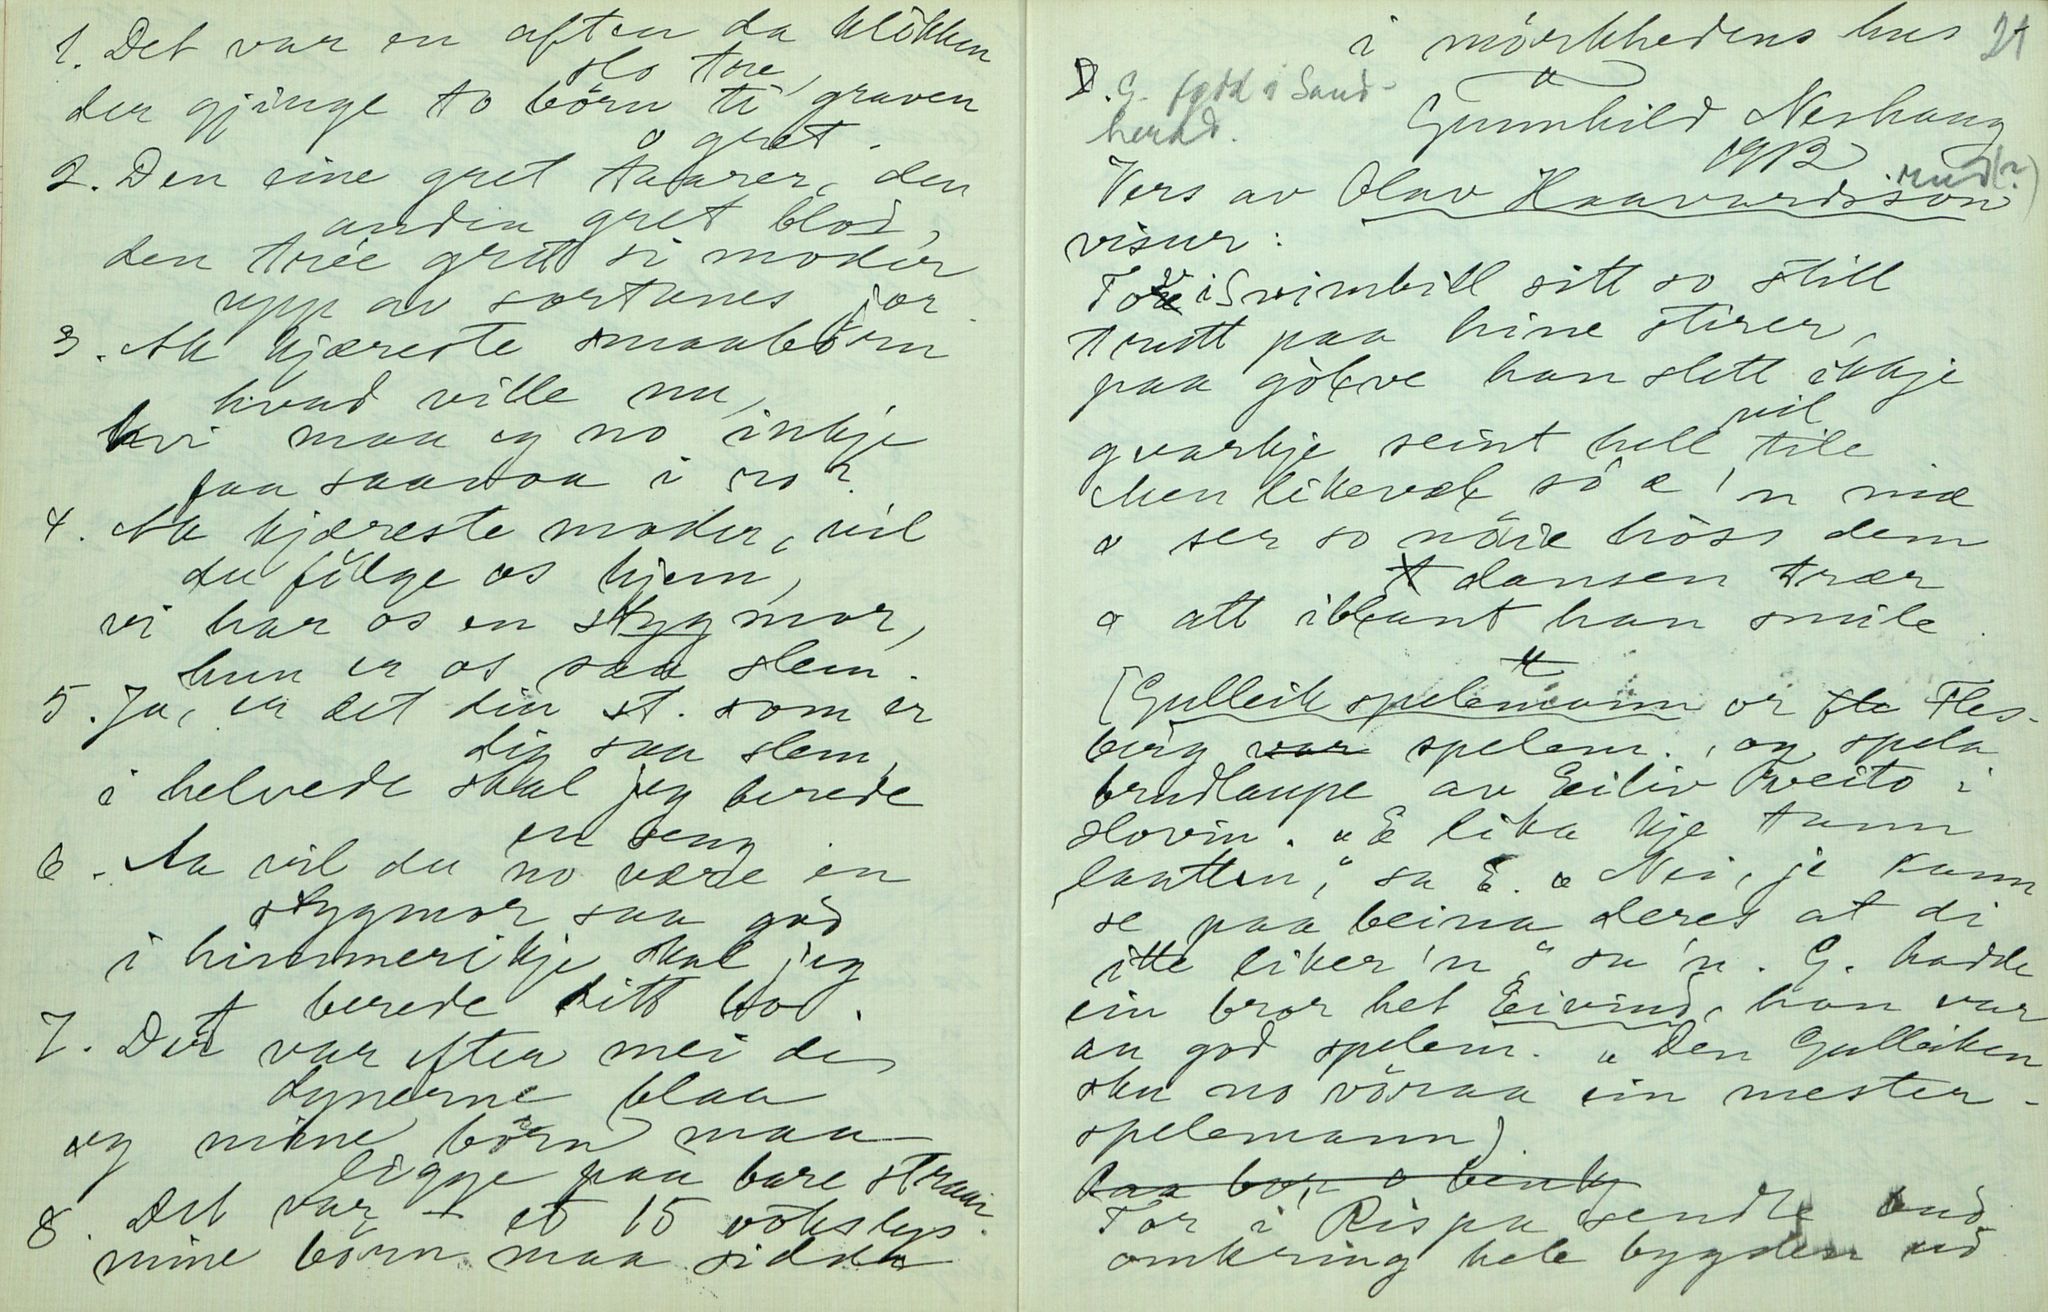 1. Det var en aften da klökken
slo tre,
der gjinge to börn ti graven
o gret.
2. Den eine gret taarer, den
andia gret blod,
den tréé gret si moder
upp av sortanes jor.
3. Ak kjæreste smaabörn
hvad ville nu,
kvi maa eg no inkje
faa saavaa i ro?
4. Ak kjæreste moder, vil
du fölge os hjem,
vi har os en stygmor,
hun er os saa slem.
5. Ja, er det din st. som er
dig saa slem,
i helvede skal jeg berede
en seng
6. Aa vil du no være en
stygmor saa god
i himmerikje skal jeg
berede ditt bod.
7. Det var efter mei di
dynerne blaa
og mine börn maa
ligge paa bare straai.
8. Det var et 15 vökslys.
mine börn maa sidda
i mörkhedens hus
21
D. G. fødd i Sand-
herad.
Gunnhild Neshaug
1912
Vers av Olav Haavardsson
rud(?)
visur:
Tov i Svimbill sitt so still
trutt paa hine stirer,
paa gölve han slett ikkje
vil
gvarkje seint hell tile
Men likevæl so æ 'n mæ
o ser so nöie höss dem
dansen trær
o att iblant han smile.
[Gulleik spelemann or fle Fles-
berg var spelem., og spela
brudlaupe av Eiliv Tveito i
slovin. "E lika kje tann
laatten," sa E. "Nei, je kann
se paa beina deres at di
itte liker 'n" sa 'n. G. hadde
ein bror het Eivind, han var
au god spelem. "Den Gulleiken
sku no vöraa ein mester-
spelemann)
Paa bor o benk
Tor i Rispa sendte bud
omkring hele bygden ud